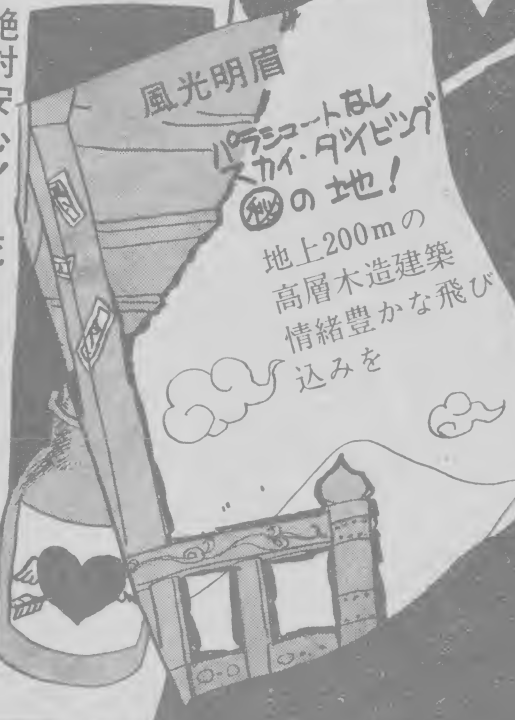 絶対安
風光明眉
パラシュートなし
スカイ・ダイビング
㊙の地!
地上200mの
高層木造建築
情緒豊かな飛び
込みを